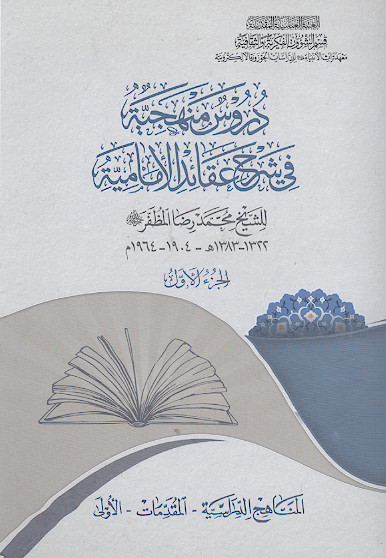 العتبة العباسية المقدسة
قسم الشؤون الفكرية والثقافية
معهد تراث الأنبياء للدراسات الحوزوية الالكترونية
دُرُوسٌ مَنْهَجِيَّةٌ
فِي شَرْحِ عَقَائِدِ الْإِمَامِيَّةِ
للشيخ محمد رضا المظفر
١٣٢٢-١٣٨٣هـ - ١٩٠٤-١٩٦٤م
الجزء الأول
المناهج الدراسية - المقدمات - الأولى